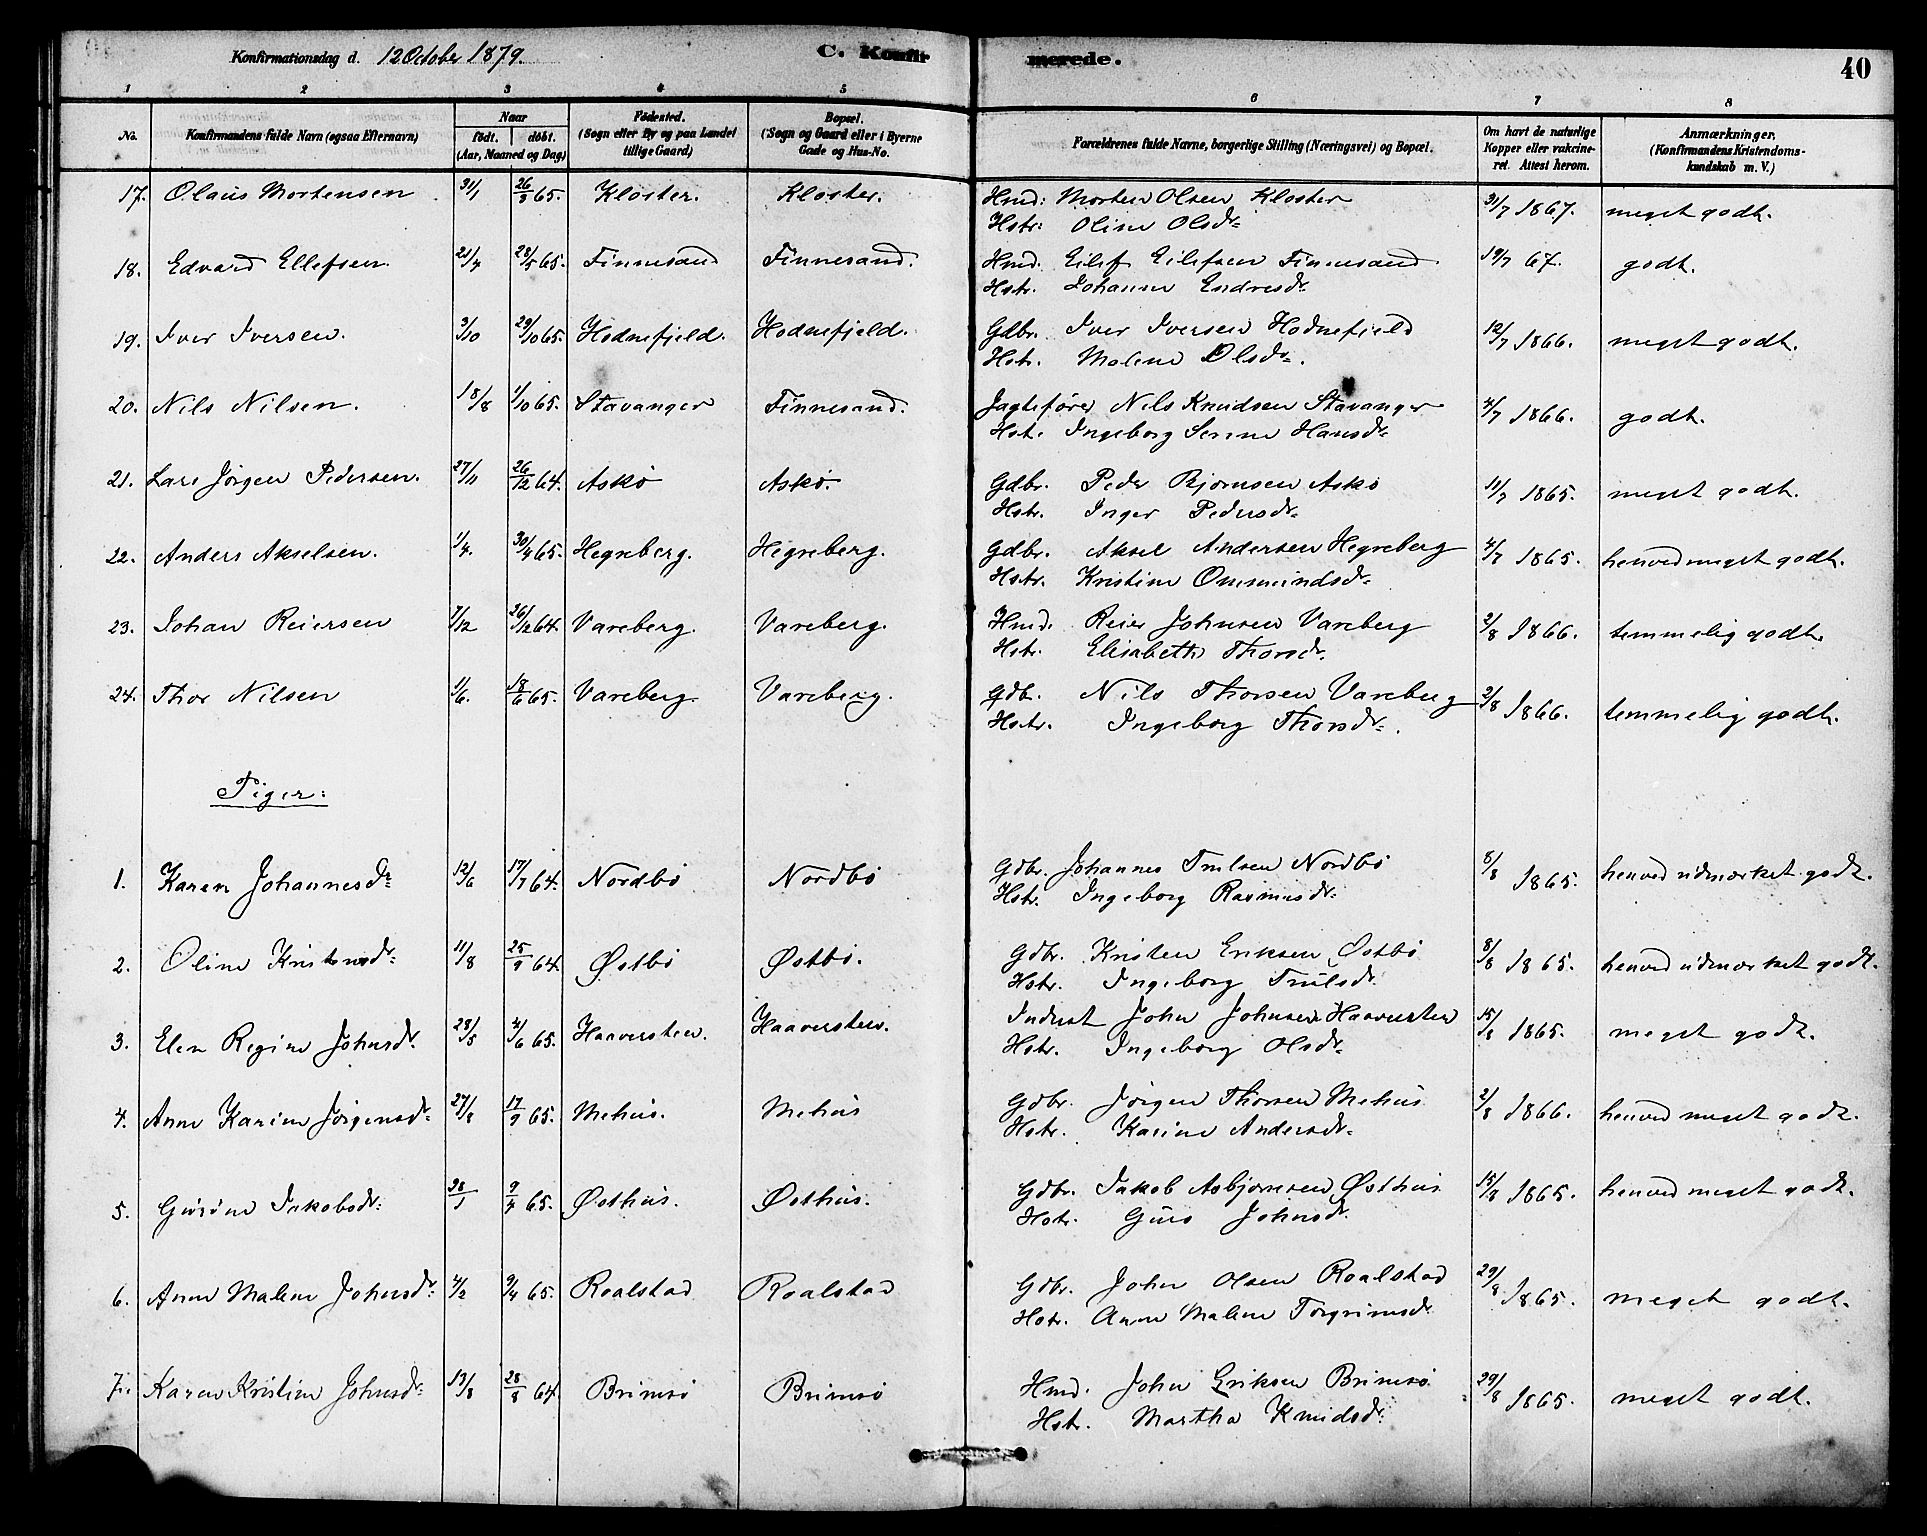 Konfirmationsdag d. 12 October 1879. C. Konfirmerede. 40
1 2 3 4 5 6 7 8
No. Konfirmandens fulde Navn (ogsaa Efternavn) Naar født. døbt. (Aar, Maaned og Dag) Födested. (Sogn eller By og paa Landet tillige Gaard) Bopæl. (Sogn og Gaard eller i Byerne Gade og Hus-No. Forældrenes fulde Navne, borgerlige Stilling (Næringsvei) og Bopæl. Om havt de naturlige Kopper eller vakcineret. Attest herom. Anmærkninger, (Konfirmandens Kristendomskundskab m. V.)
17. Olaus Mortensen 31/1 26/3 65. Kloster. Kloster. Hmd: Morten Olsen Kloster 31/7 1867. meget godt.
Hstr: Oline Olsdr
18. Edvard Ellefsen 21/4 28/5 65. Finnesand Finnesand. Hmd. Eilef Eilefsen Finnesand 19/7 67. godt.
Hstr. Johanne Endresdr
19. Iver Iversen. 3/10 29/10 65. Hodnefjeld. Hodnefjeld. Gdbr. Iver Iversen Hodnefjeld 12/7 1866. meget godt.
Hstr. Malene Olsdr.
20. Nils Nilsen. 18/8 1/10 65. Stavanger Finnesand. Jagtefører Nils Knudsen Stavanger 4/7 1866. godt.
Hst. Ingeborg Serine Hansdr
21. Lars Jørgen Pedersen. 27/11 26/12 64. Askø Askø. Gdbr. Peder Bjørnsen Askø 11/7 1865. meget godt.
Hstr. Inger Pedersdr
22. Anders Akselsen. 1/4. 30/4 65. Hegreberg. Hegreberg. Gdbr. Aksel Andersen Hegreberg 4/7 1865. henved meget godt.
Hstr. Kristine Ommundsdr
23. Johan Reiersen 7/12 26/12 64. Vareberg. Vareberg. Hmd. Reier Johnsen Vareberg 2/8 1866. temmelig godt.
Hstr. Elisabeth Thorsdr.
24. Thor Nilsen 1/6. 18/6 65. Vareberg. Vareberg. Gdb. Nils Thorsen Vareberg 2/8 1866. temmelig godt.
Hstr. Ingeborg Thorsdr.
Piger:
1. Karen Johannesdr 12/6 17/7 64. Nordbø Nordbø Gdbr. Johannes Trulsen Nordbø 8/8 1865. henved udmærket godt.
Hstr. Ingeborg Rasmusdr
2. Oline Kristensdr 11/8 25/9 64. Østbø Østbø. Gdbr. Kristen Eriksen Østbø 8/8 1865. henved udmærket godt.
Hstr. Ingeborg Trulsdr
3. Elen Regine Johnsdr. 28/5 4/6 65. Haaversten. Haaversten. Inderst John Johnsen Haaversten 15/8 1865. meget godt.
Hstr. Ingeborg Olsdr
4. Anne Karine Jørgensdr 27/8 17/9 65. Mehus. Mehus Gdbr. Jørgen Thorsen Mehus 2/8 1866. henved meget godt.
Hstr. Karine Andersdr
5. Gurine Jakobsdr. 28/1 9/4 65. Østhus. Østhus. Gdbr. Jakob Asbjørnsen Østhus 15/8 1865. henved meget godt.
Hstr. Guro Johnsdr
6. Anne Malene Johnsdr 4/2 9/4 65. Roalstad Roalstad Gdbr. John Olsen Roalstad 29/8 1865. meget godt.
Hstr. Anne Malene Torgrimsdr
7. Karen Kristine Johnsdr 13/8 28/8 64 Brimsø Brimsø Hmd. John Eriksen Brimsø 29/8 1865. meget godt.
Hstr. Martha Knudsdr.